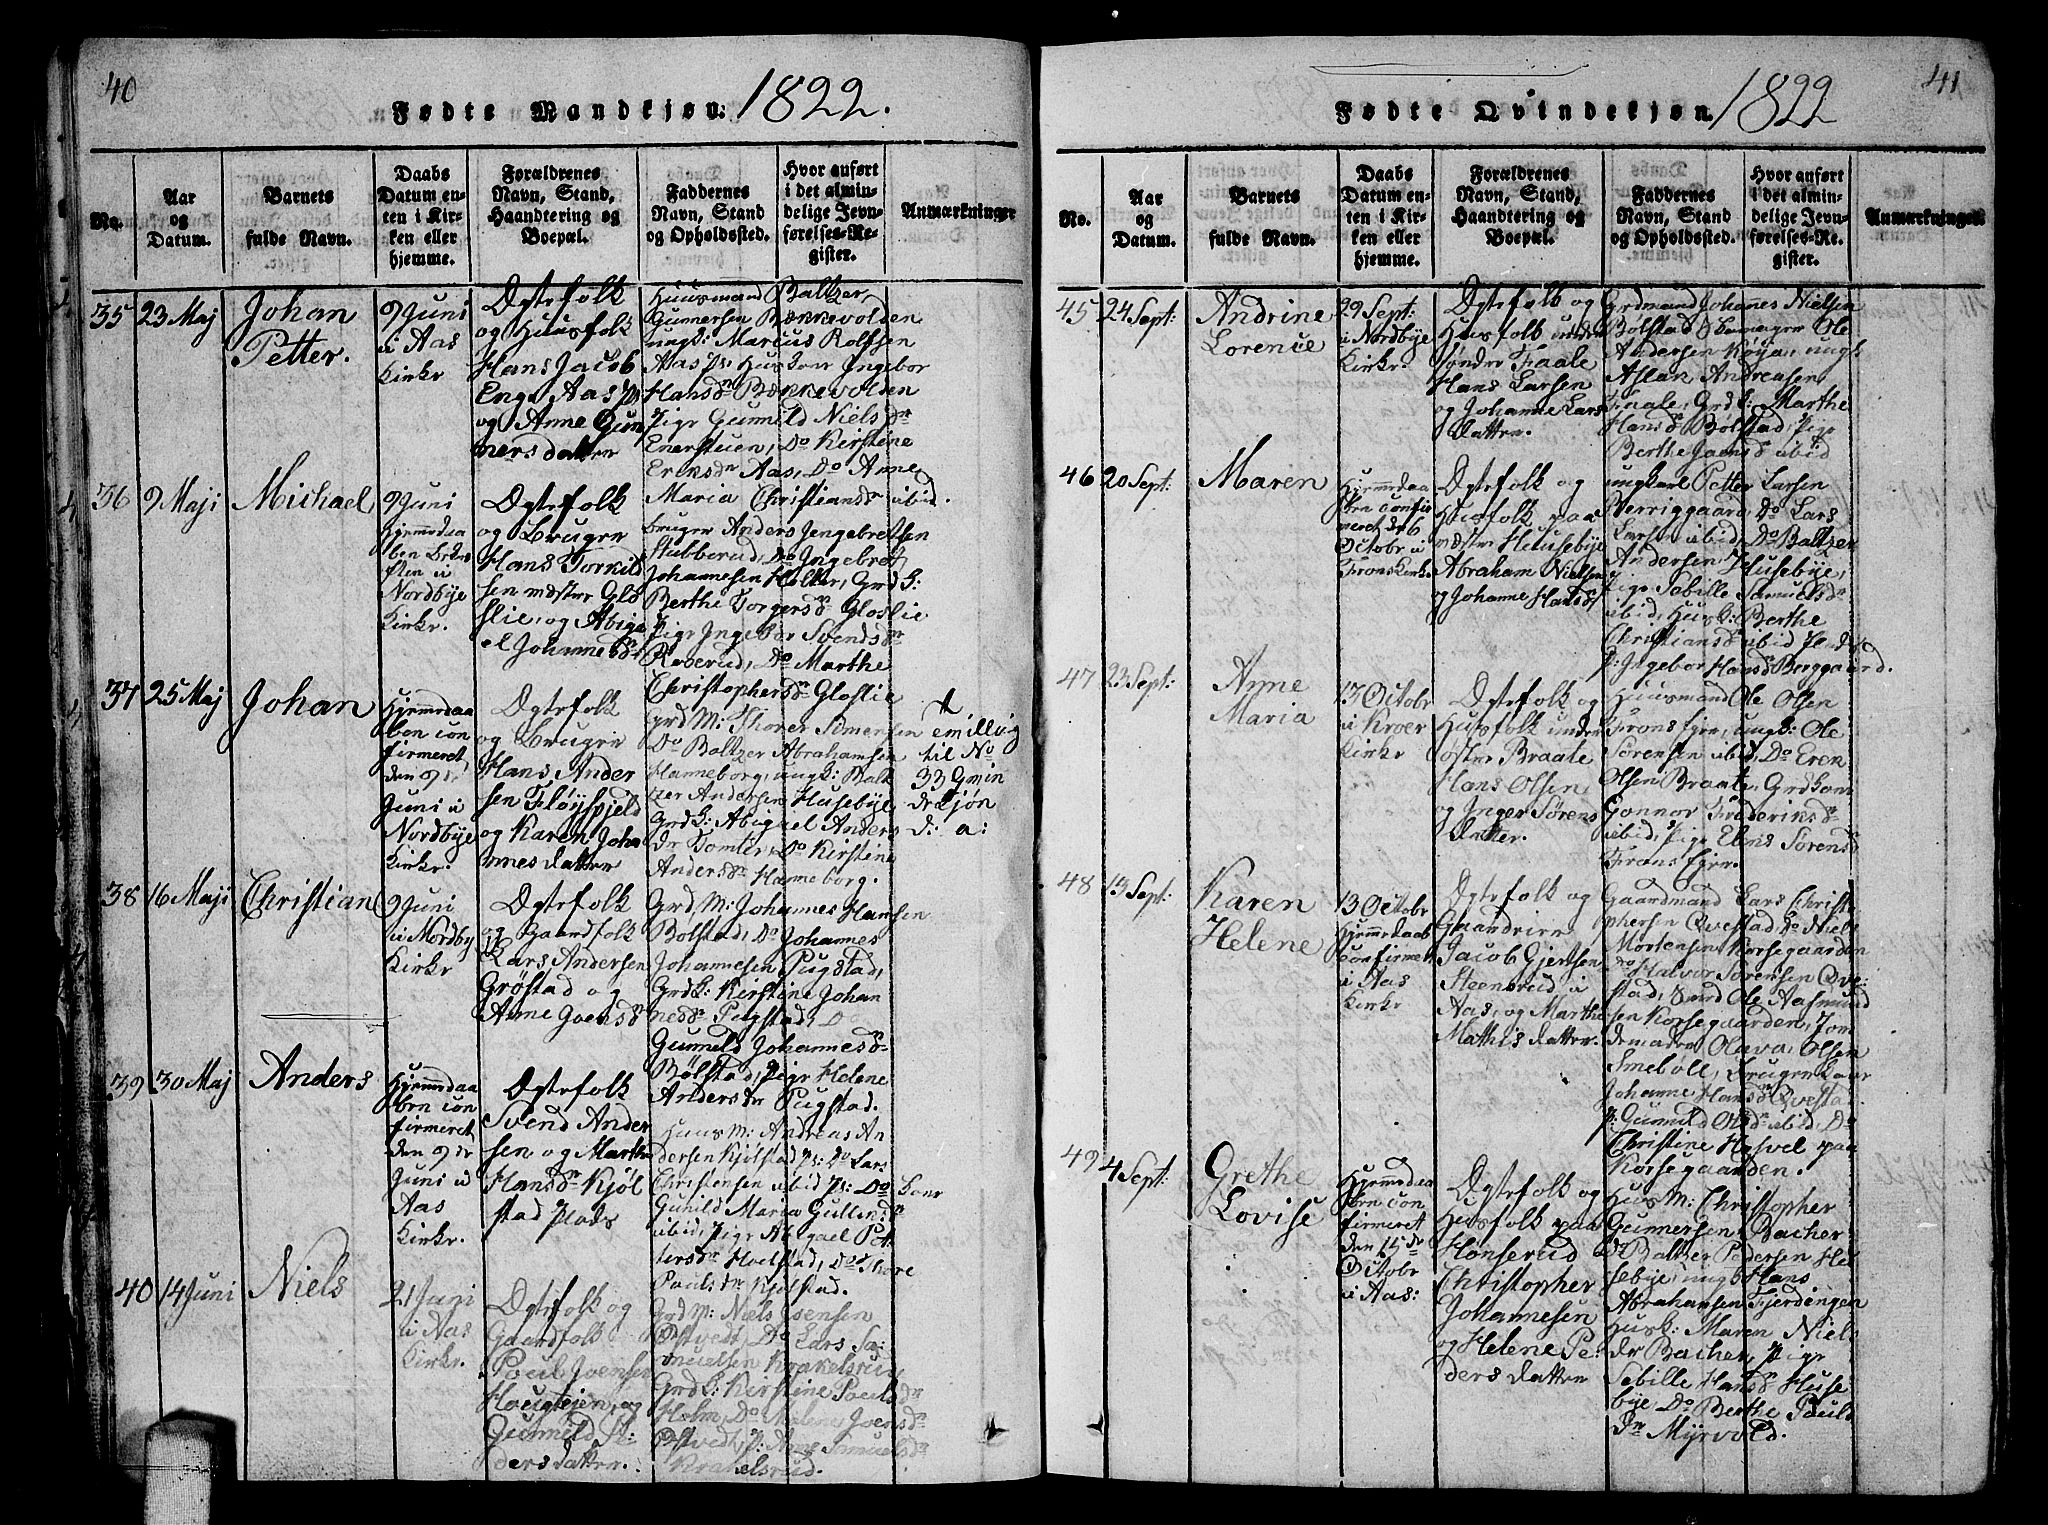 40
Fødte Mandkjøn. 1822.
No.
Aar og Datum.
Barnets fulde Navn.
Daabs Datum enten i Kirken eller hjemme.
Forældrenes Navn, Stand, Haandtering og Boepæl.
Faddernes Navn, Stand og Opholdssted.
Hvor anført i det almindelige Jevnførelses-Register.
Anmærkninger
35
23 Maj
Johan
Petter.
9 Juni
i Aas
Kirke
Ægtefolk
og Huusfolk
Hans Jacob
Eng. Aas Ps
og Anne Gun
nersdatter
Huusmand Baltzer
Gunnersen Bækkevolden
ungk: Marcus Rolfsen
Aas Ps Huskone Ingebor
Hansdr Bækkevolden
Pige Gunnild Nielsdr
Enersteuen, Do Kirstine
Eriksdr Aas, Do Anne
Maria Christiansdr ibid.
36
9 Maji
Michael
9 Juni
Nordbye
Kirke.
Ægtefolk
og Bruger
Hans Torkild
sen næstre Glo
slie, og Abiga
el Johannesdr
Bruger Anders Jengebretsen
Stubberud, Do Ingebret
Johannesen Holter, Grdk:
Berthe Torgersdr Gloslie
Pige Ingebor Svendsdr
Roerud, Do Marthe
Christophersdr Gloslie
37
25 Maj
Johan
Hjemmedaa
ben con
firmeret
den 9de
Juni i
Nordbye
Kirke.
Ægtefolk
og Bruger
Hans Ander
sen Fløyspjeld
og Karen Joha
nnes datter
Grd M: Thorer Simensen
Do Baltzer Abrahamsen
Hanneborg, ungk: Balt
zer Andersen Husebye
Grdk: Abigael Anders
dr Tomter, Do Kirstine
Andersdr Hanneborg.
til No
33 Qvin
dekjøn
d: a:
38
16 Maji
Christian
9 Juni
i Nordby
Kirke
Ægtefolk
og Gaardfolk
Lars Andersen
Grøstad og
Anne Joensdr
Grd M: Johannes Hansen
Bølstad, Do Johannes
Johannesen Pugstad,
Grdk: Kirstine Johan
nesdr Pugstad, Do
Gunnild Johannesdr
Bølstad, Pige Helene
Andersdr Pugstad.
39
30 Maj
Anders
Hjemmedaa
ben con
firmeret
den 9de
Juni i
Aas
Kirke.
Ægtefolk
Svend Ander
sen og Marthe
Hansdr Kjøl
stad Plads
Huus M: Andreas An
dersen Kjølstad Ps: Do Lars
Christensen ibid Ps: Do Kone
Gunild Maria Gullendr
ibid, Pige Abigael Pet
tersdr Hoelstad, Do Thore
Paulsdr Kjølstad.
40
14 Juni
Niels
21 Juni
i Aas
Kirke.
Ægtefolk og
Gaardfolk
Poul Joensen
Hougteien, og
Gunnild Pe
ders datter.
Grd M: Niels Joensen
Østvedt, Do Lars Sa
muelsen Krakelsrud,
Grdk: Kirstine Poulsdr
Holm, Do Malene Joensdr
Østvedt, P: Anne Samuelsdr
Krakelsrud.
41
Fødte Qvindekjøn. 1822
No.
Aar og Datum.
Barnets fulde Navn.
Daabs Datum enten i Kirken eller hjemme.
Forældrenes Navn, Stand, Haandtering og Boepæl.
Faddernes Navn, Stand og Opholdssted.
Hvor anført i det almindelige Jevnførelses-Register.
Anmærkninger.
45
24 Sept:
Andrine
Lorence
29 Sept:
i Nordbye
Kirke.
Ægtefolk og
Husfolk under
søndre Faale
Hans Larsen
og Johanne Lars
datter.
Grdmand Johanes Nielsen
Bølstad, Ole
Andersen Køya, ungk:
Aslak Andreasen
Faale, Grdk: Marthe
Hansdr Bølstad, Pige
Berthe ibid
46
20 Sept:
Maren
Hjemmedaa
ben confir
meret d. 6
Octobr i
Frons Kirke
Ægtefolk og
Husfolk paa
næstre Husebye
Abraham Nielsen
og Johanne Hansdr
ungkarl Petter Larsen
Verriggaard, Do Lars
Larsen ibid, Do Baltzer
Andersen Husebye,
Pige Sabille Samuelsdr
ibid, Husk: Berthe
Christiansdr ibid
P: Ingebor Hansdr Berggaard.
47
23 Sept:
Anne
Maria
13 Octobr
i Kroer
Kirke
Ægtefolk og
Husfolk under
øster Braate
Hans Olsen,
og Inger Sørens
datter.
Huusmand Ole Olsen
Fronseyre, ungk: Ole
Sørensen ibid, Do Even
Olsen Braate, Grdkone
Gonnor Frideriksdr
ibid, Pige Elens Sørensdr
Fronseyre.
48
13 Sept:
Karen
Helene
13 Octobr
Hjemmedaab
confirmet
i Aas
Kirke
Ægtefolk og
Jacob Gjertsen
Steensrud i
Aas, og Marthe
Mathis datter.
Gaardmand Lars Christo
phersen Qvestad, Do Niels
Mortensen Korsegaarden
Do Halvor Sørensen Qve
stad, Ole Aasmund
sen Korsegaarden, Jor
demoder Olava Olsen
Smebøll, Bruger Kone
Johanne Hansdr Qvesta
P: Gunnild Olsdr ibid, Do
Christine Hasvel paa
Korsegaarden.
49
4 Sept:
Grethe
Lovise
Hjemmedaa
ben con
firmeret
den 15de
Octobr
i Aas:
Ægtefolk og
Husfolk paa
Hønserud
Christopher
Johannesen
og Helene Pe
ders datter
Huus M: Christopher
Gunnersen Bacher
Do Baltzer Pedersen Hu
sebye, ungk Hans
Abrahamsen Fjerdingen
Husk: Maren Niels
dr Bacher, Pige
Sebille Hansdr Huse
bye Do Berthe Pouls
dr Myrvold.